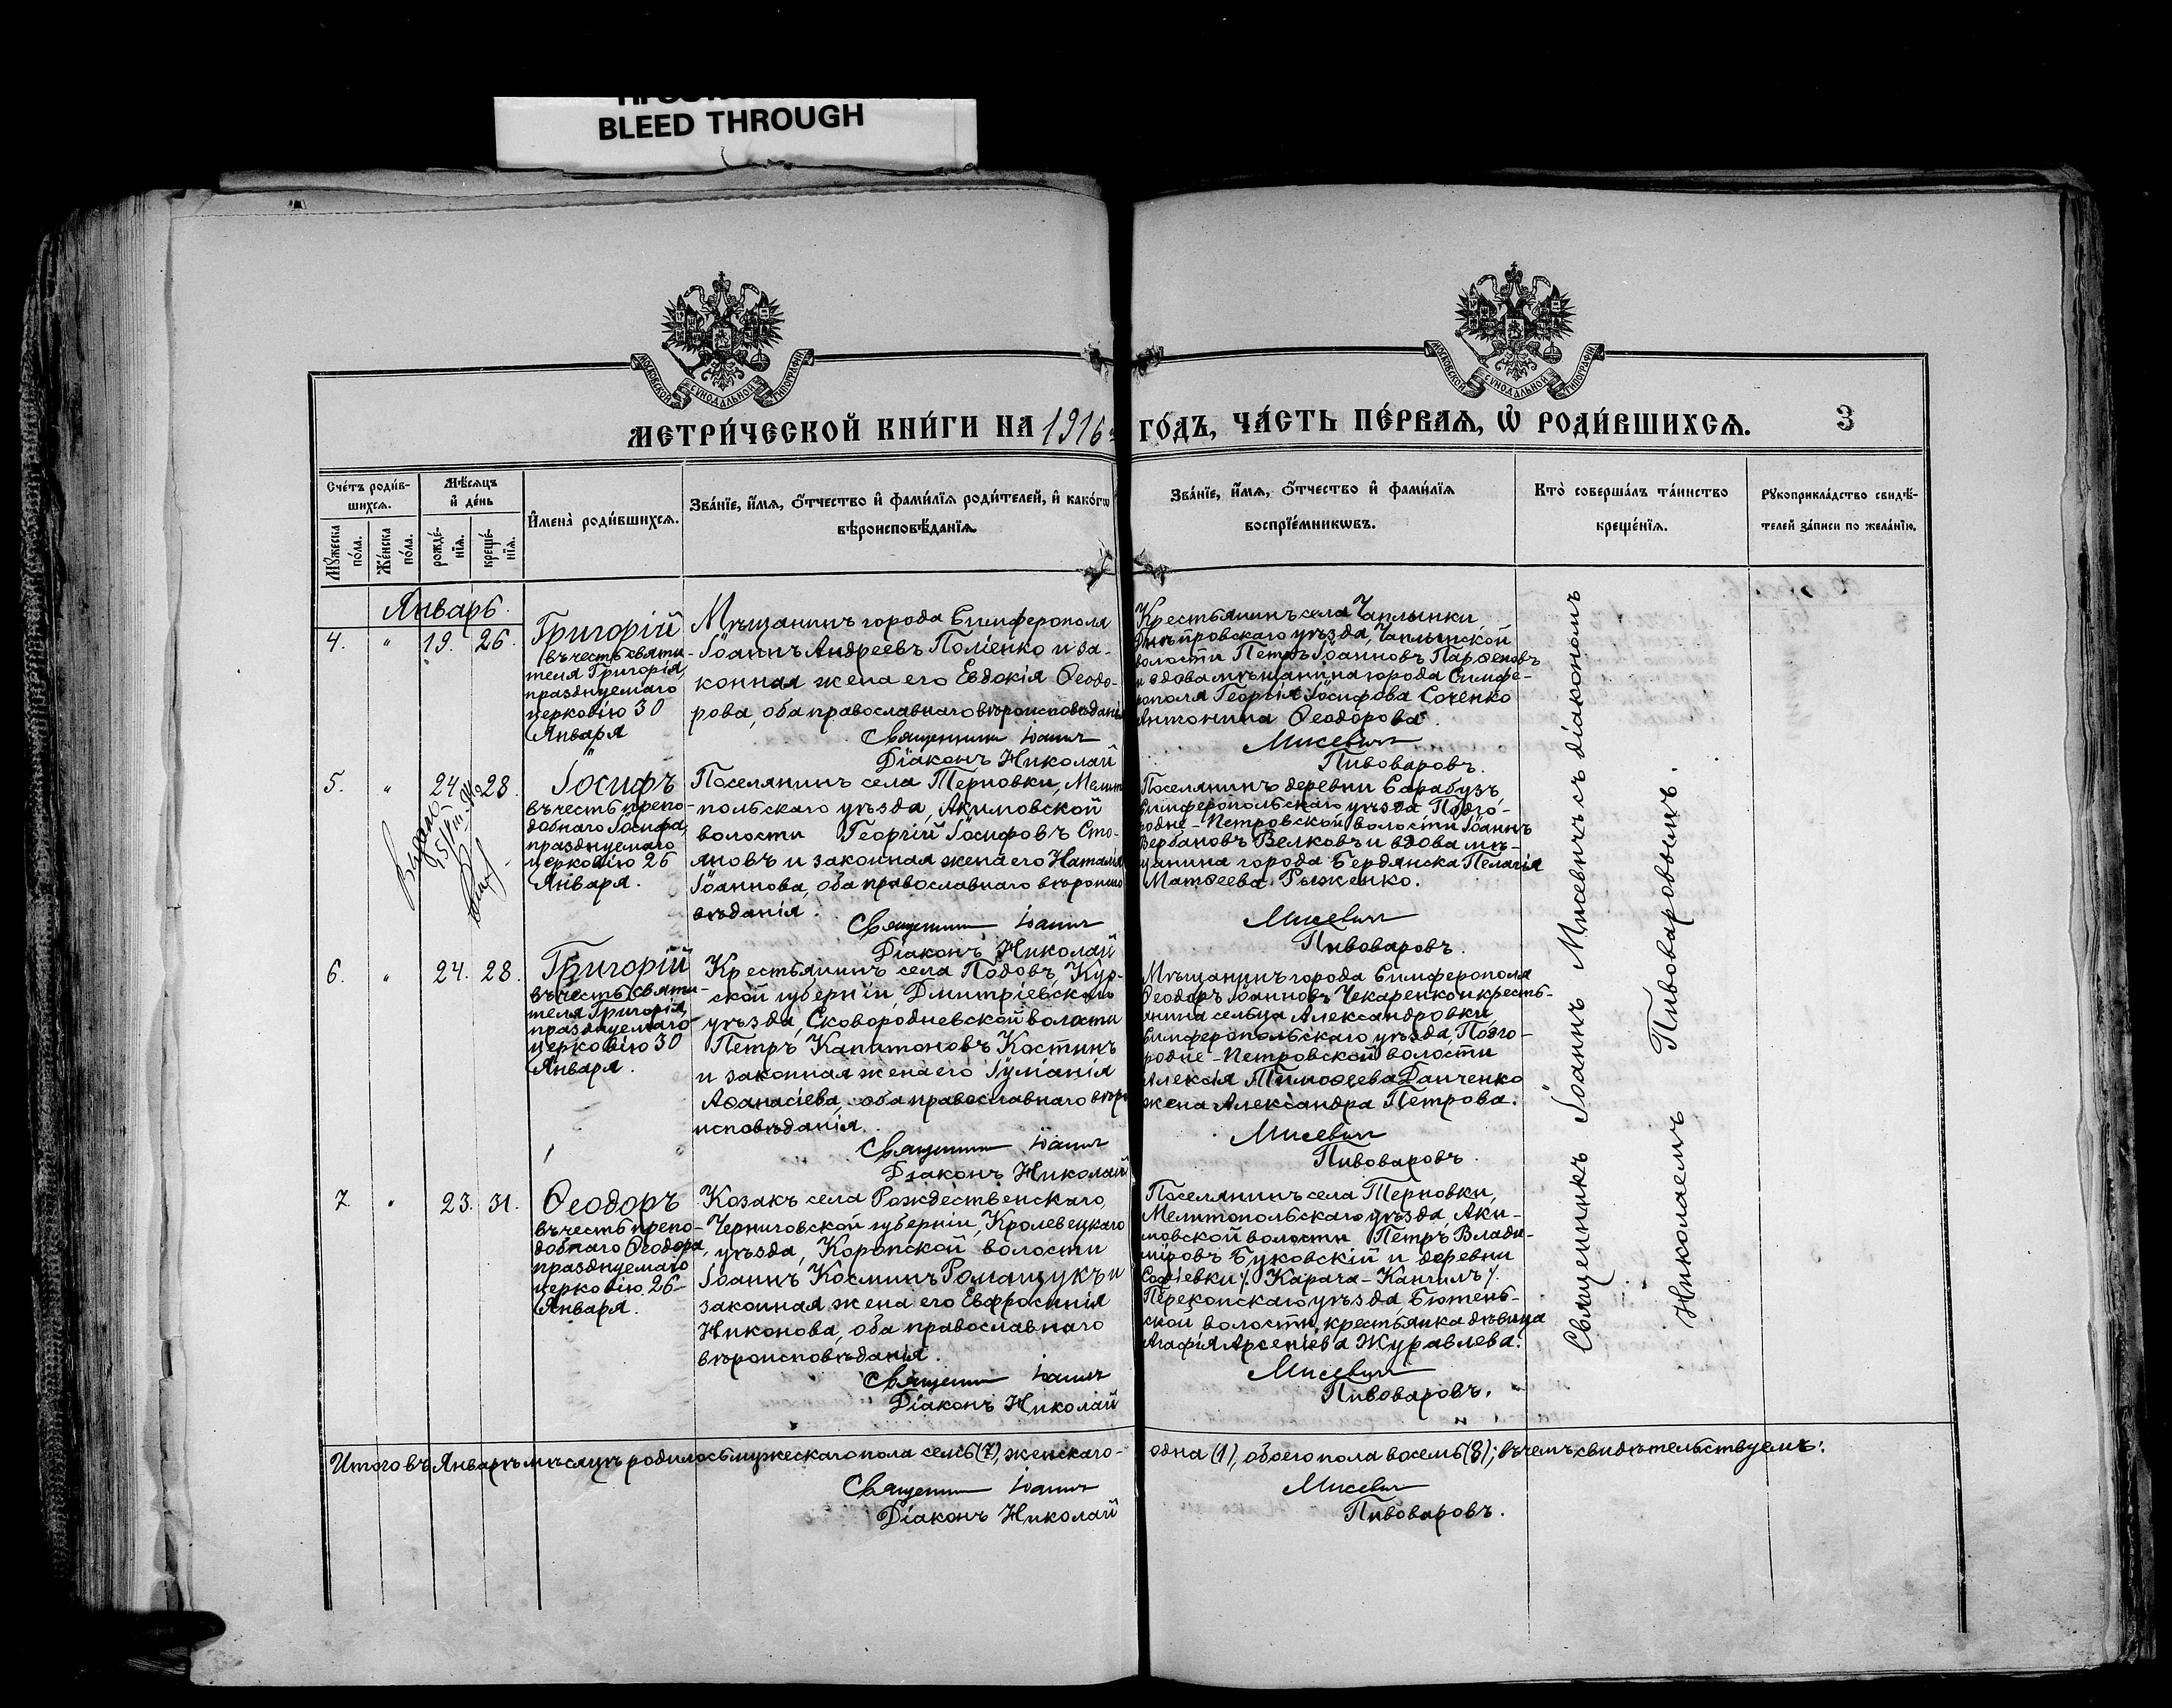 BLEED THROUGH
МОСКОВСКОЙ СѴНОДАЛЬНОЙ ТИПОГРАФІИ
МОСКОВСКОЙ СѴНОДАЛЬНОЙ ТИПОГРАФІИ
МЕТРИ́ЧЕСКОЙ КНИ́ГИ НА 1916 ГО́ДЪ, ЧА́СТЬ ПЕ́РВАѦ, Ѡ҆ РОДИ́ВШИХСѦ. 3
Сче́тъ роди́в-
шихсѧ.
Мѣ́сѧцъ
и҆ де́нь
Мꙋ́жеска
по́ла.
Же́нска
по́ла.
рожде́-
нїѧ.
креще́-
нїѧ.
И҆мена̀ роди́вшихсѧ.
Зва́нїе, и҆́мѧ, ѻ҆́тчество и҆ фами́лїѧ роди́телей, и҆ како́гѡ
вѣроисповѣ́данїѧ.
Зва́нїе, и҆́мѧ, ѻ҆́тчество и҆ фами́лїѧ
воспрїе́мникѡвъ.
Кто̀ соверша́лъ та́инство
креще́нїѧ.
Рꙋкоприкла́дство свидѣ́-
телей за́писи по жела́нїю.
Январь.
4. " 19. 26.
Григорій
въ честь святи-
теля Григорія,
празднуемаго
церковію 30
Января
Мѣщанинъ города Симферополя
Іоаннъ Андреевъ Поліенко и за-
конная жена его Евдокія Ѳеодо-
рова, оба православнаго вѣроисповѣданія
Священникъ Іоаннъ
Діаконъ Николай
Крестьянинъ села Чаплынки,
Днѣпровскаго уѣзда, Чаплынской
волости Петръ Іоанновъ Парѳеновъ
и вдова мѣщанина города Симфе-
рополя Георгія Іосифова Соченко
Антонина Ѳеодорова.
Мисевичъ
Пивоваровъ.
5. " 24. 28.
Іосифъ
въ честь препо-
добнаго Іосифа,
празднуемаго
церковію 26
Января.
Поселянинъ села Терновки, Мелит
польскаго уѣзда, Акимовской
волости Георгій Іосифовъ Сто-
яновъ и законная жена его Наталія
Іоаннова, оба православнаго вѣроиспо
вѣданія.
Священникъ Іоаннъ
Діаконъ Николай
Поселянинъ деревни Сарабузъ
Симферопольскаго уѣзда Подго-
родне-Петровской волости Іоаннъ
Вербановъ Велковъ и вдова мѣ-
щанина города Бердянска Пелагія
Матѳеева Рыженко.
Мисевичъ
Пивоваровъ.
6. " 24. 28.
Григорій
въ честь святи-
теля Григорія,
празднуемаго
церковію 30
Января.
Крестьянинъ села Подовъ, Кур-
ской губерніи, Дмитріевскаго
уѣзда, Сковородневской волости
Петръ Капитоновъ Костинъ
и законная жена его Іуманія
Аѳанасіева, оба православнаго вѣро
исповѣданія.
Священникъ Іоаннъ
Діаконъ Николай
Мѣщанинъ города Симферополя
Ѳеодоръ Іоанновъ Чекаренко и кресть-
янина сельца Александровки,
Симферопольскаго уѣзда, Подго-
родне-Петровской волости
Алексія Тимоѳеева Данченко
жена Александра Петрова.
Мисевичъ
Пивоваровъ
7. " 23. 31.
Ѳеодоръ
въ честь препо-
добнаго Ѳеодора,
празднуемаго
церковію 26
Января.
Козакъ села Рождественскаго,
Черниговской губерніи, Кролевецкаго
уѣзда, Коропской волости
Іоаннъ Косминъ Ромащукъ и
законная жена его Евфросинія
Никонова, оба православнаго
вѣроисповѣданія.
Священникъ Іоаннъ
Діаконъ Николай
Поселянинъ села Терновки,
Мелитопольскаго уѣзда, Аки-
мовской волости Петръ Влади-
міровъ Буковскій и деревни
Софіевки /. Карача-Кангилъ /.
Перекопскаго уѣзда, Бютень-
ской волости, крестьянка дѣвица
Агафія Арсеніева Журавлева.
Мисевичъ
Пивоваровъ.
Священникъ Іоаннъ Мисевичъ съ діакономъ
Николаемъ Пивоваровымъ.
Итого въ Январѣ мѣсяцѣ родилось мужескаго пола семь (7), женскаго - одна (1), обоего пола восемь (8); въ чемъ свидѣтельствуемъ:
Священникъ Іоаннъ Мисевичъ
Діаконъ Николай Пивоваровъ.